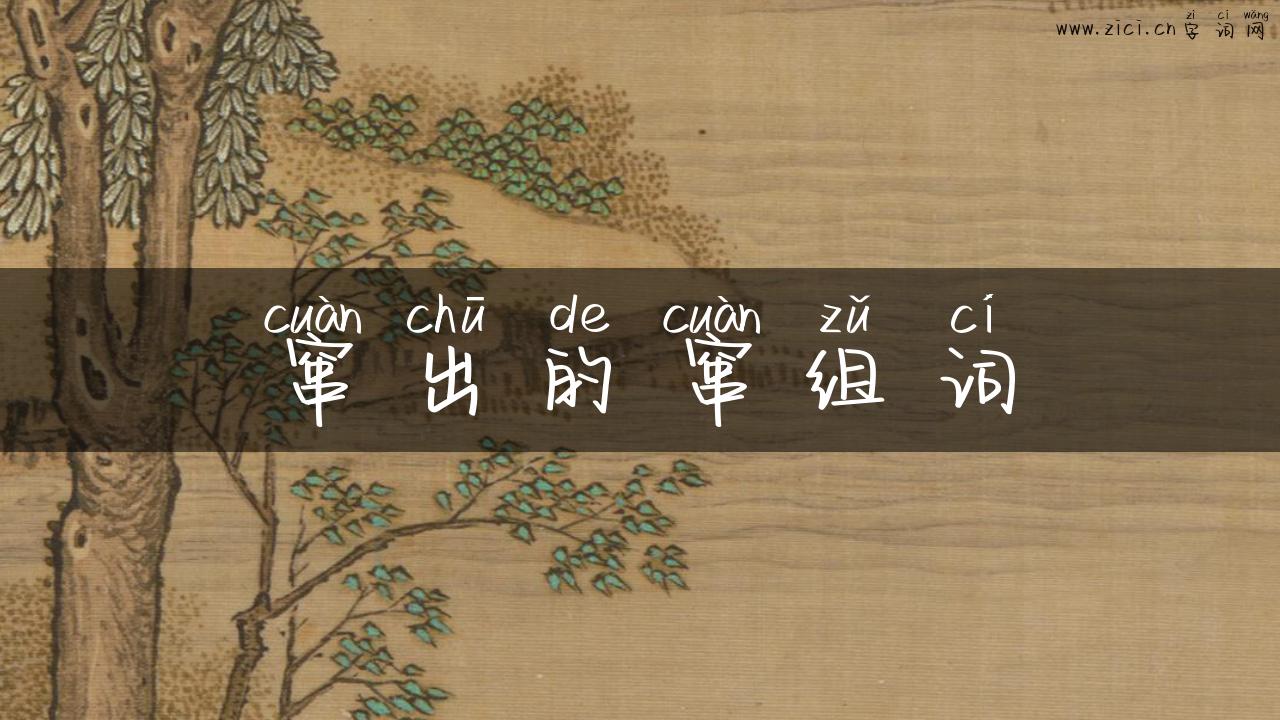 zì cí wǎng
www.zici.cn 字词网
cuàn chū de cuàn zǔ cí
窜出的窜组词